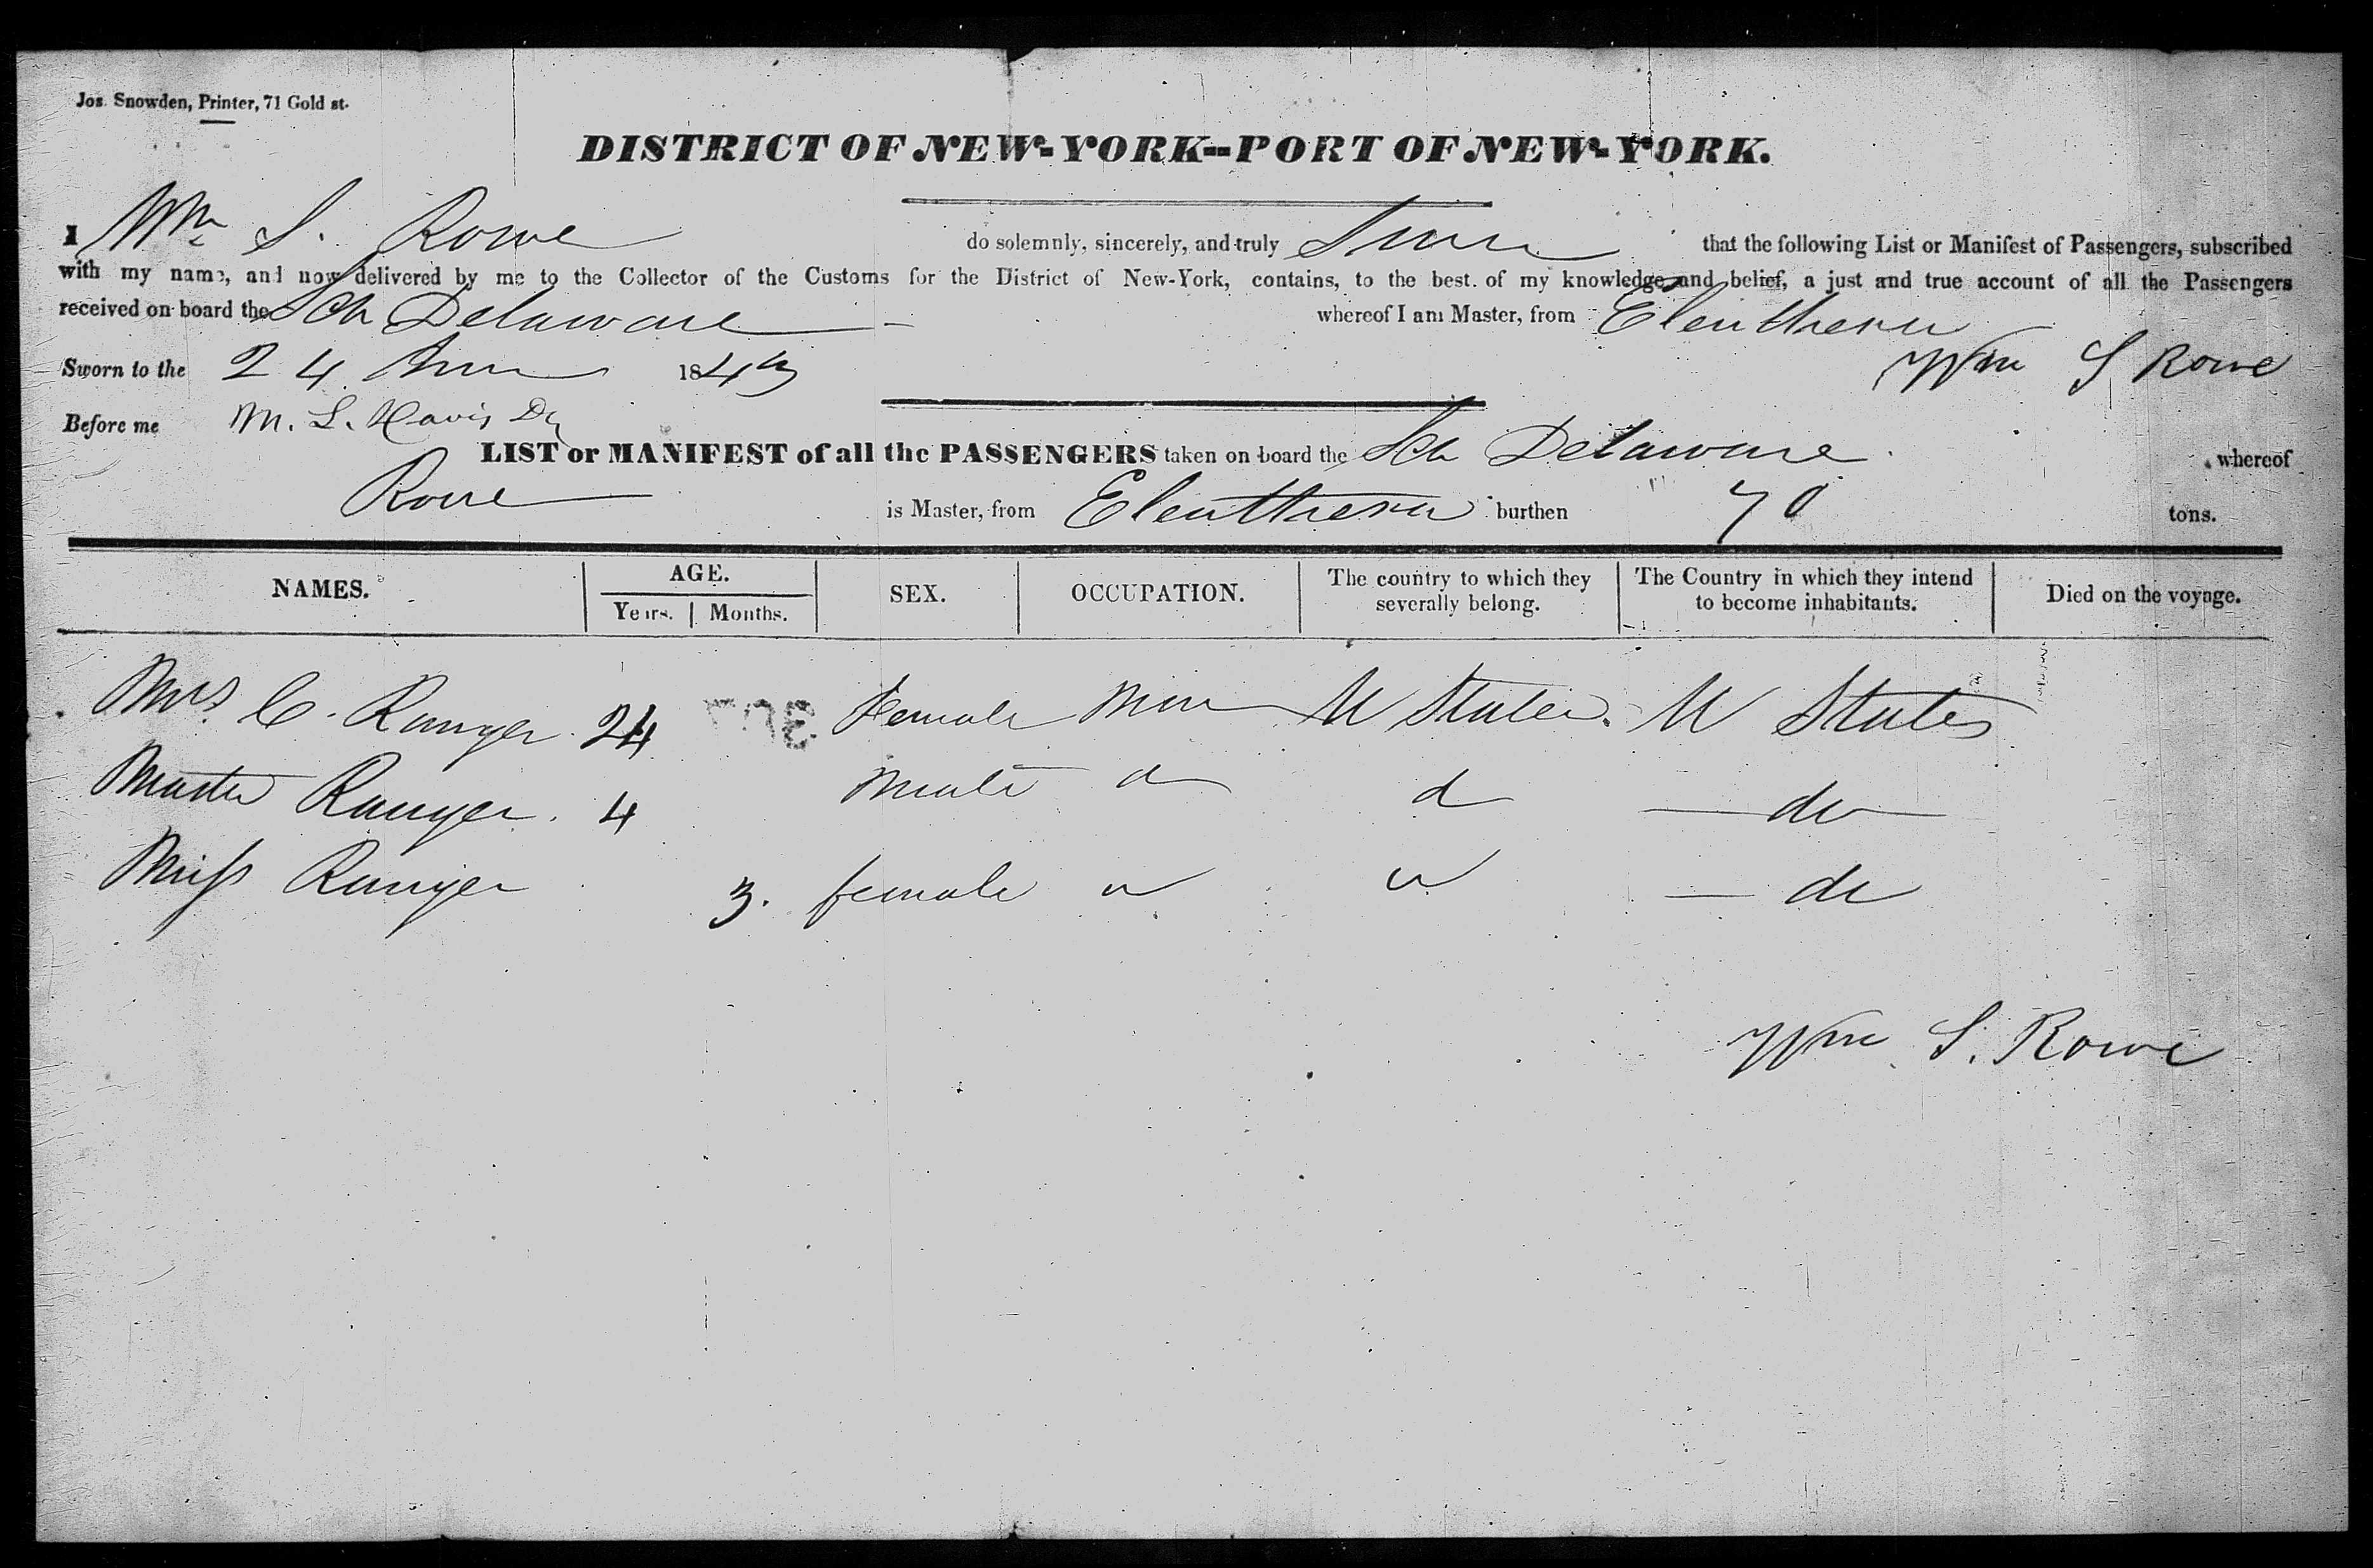 Jos. Snowden, Printer, 71 Gold st.
DISTRICT OF NEW-YORK--PORT OF NEW-YORK.
I Wm S. Rowe do solemnly, sincerely, and truly Swear that the following List or Manifest of Passengers, subscribed
with my name, and now delivered by me to the Collector of the Customs for the District of New-York, contains, to the best of my knowledge and belief, a just and true account of all the Passengers
received on board the Sch Delaware whereof I am Master, from Eleuthera
Sworn to the 24 1843 Wm S Rowe
Before me M. L. Davis
LIST or MANIFEST of all the PASSENGERS taken on board the Sch Delaware whereof
Rowe is Master, from Eleuthera burthen 70 tons.
NAMES. AGE. Years. Months. SEX. OCCUPATION. The country to which they severally belong. The Country in which they intend to become inhabitants. Died on the voyage.
Mrs. C. Ranger 24 Female U States. U States
Master Ranger. 4 Male d d do
Miss Ranger 3. female do
Wm. S. Rowe